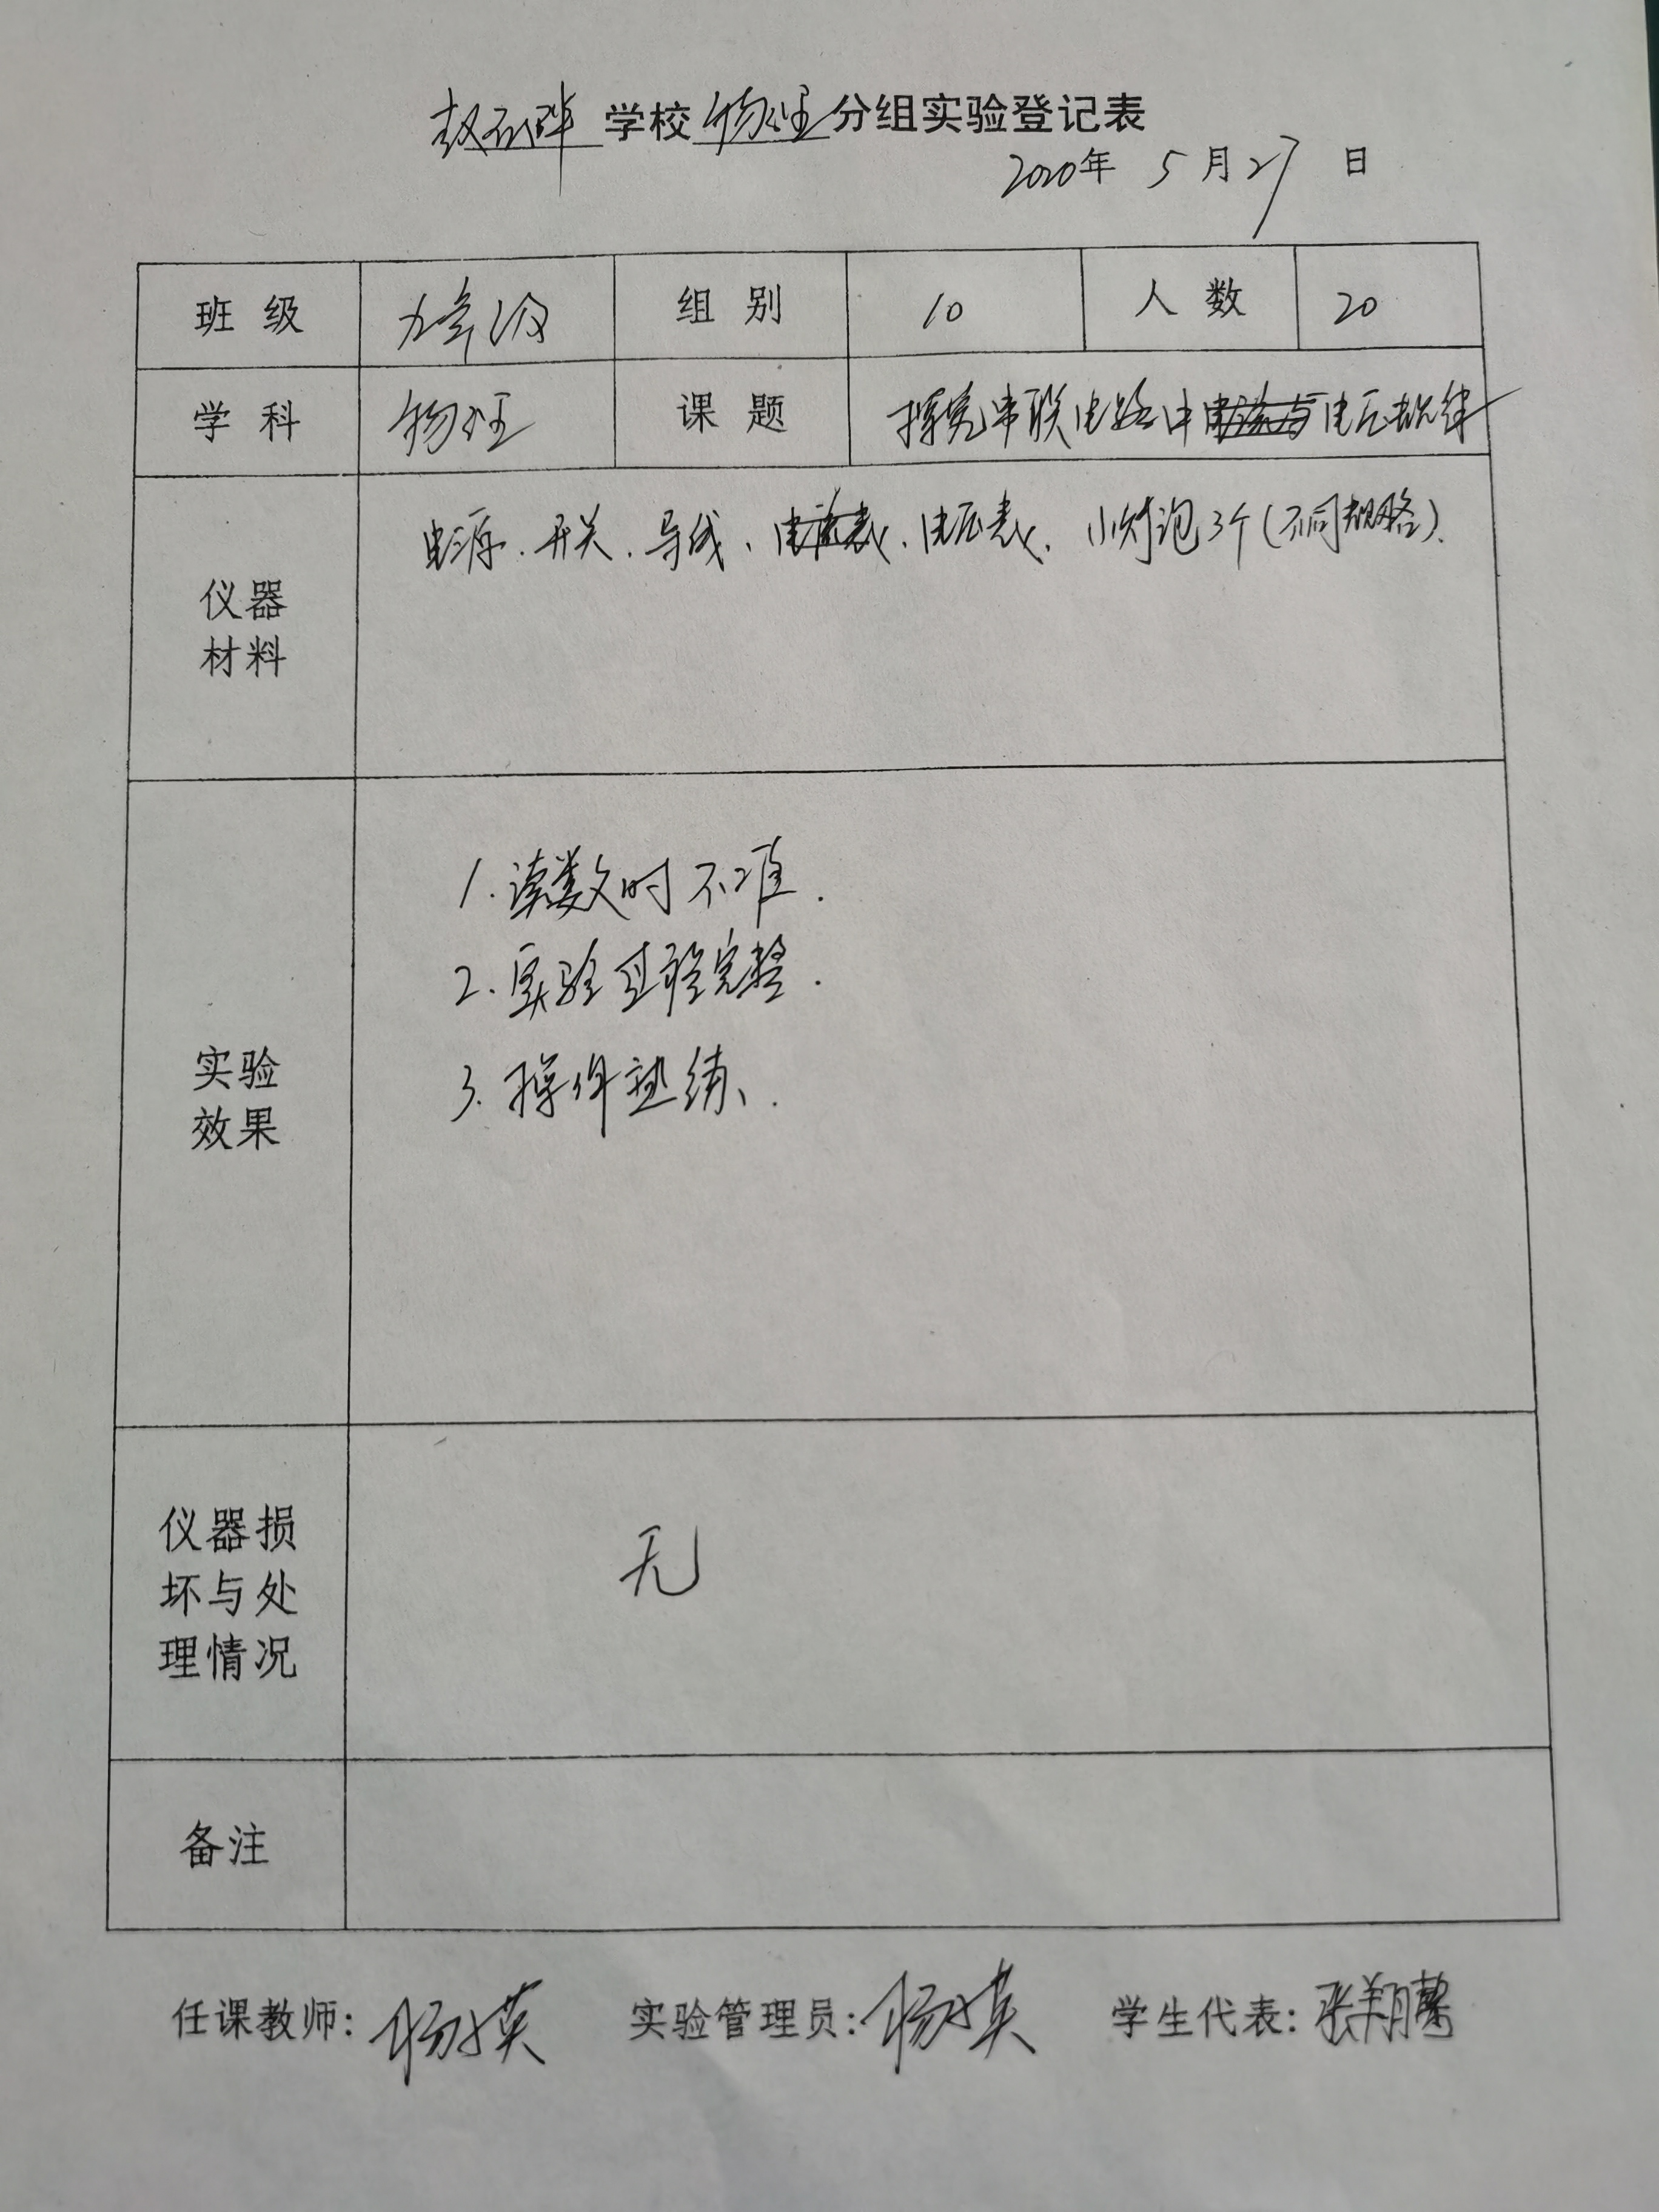 赵石畔学校物理分组实验登记表
2020年 5月27日
班级 九年级 组别 10 人数 20
学科 物理 课题 探究串联电路中电压规律
仪器材料 电源、开关、导线、电流表、电压表、小灯泡3个(不同规格).
实验效果
1.读数时不准.
2.实验过程完整.
3.操作熟练.
仪器损坏与处理情况 无
备注
任课教师: 杨英 实验管理员: 杨英 学生代表: 张翔